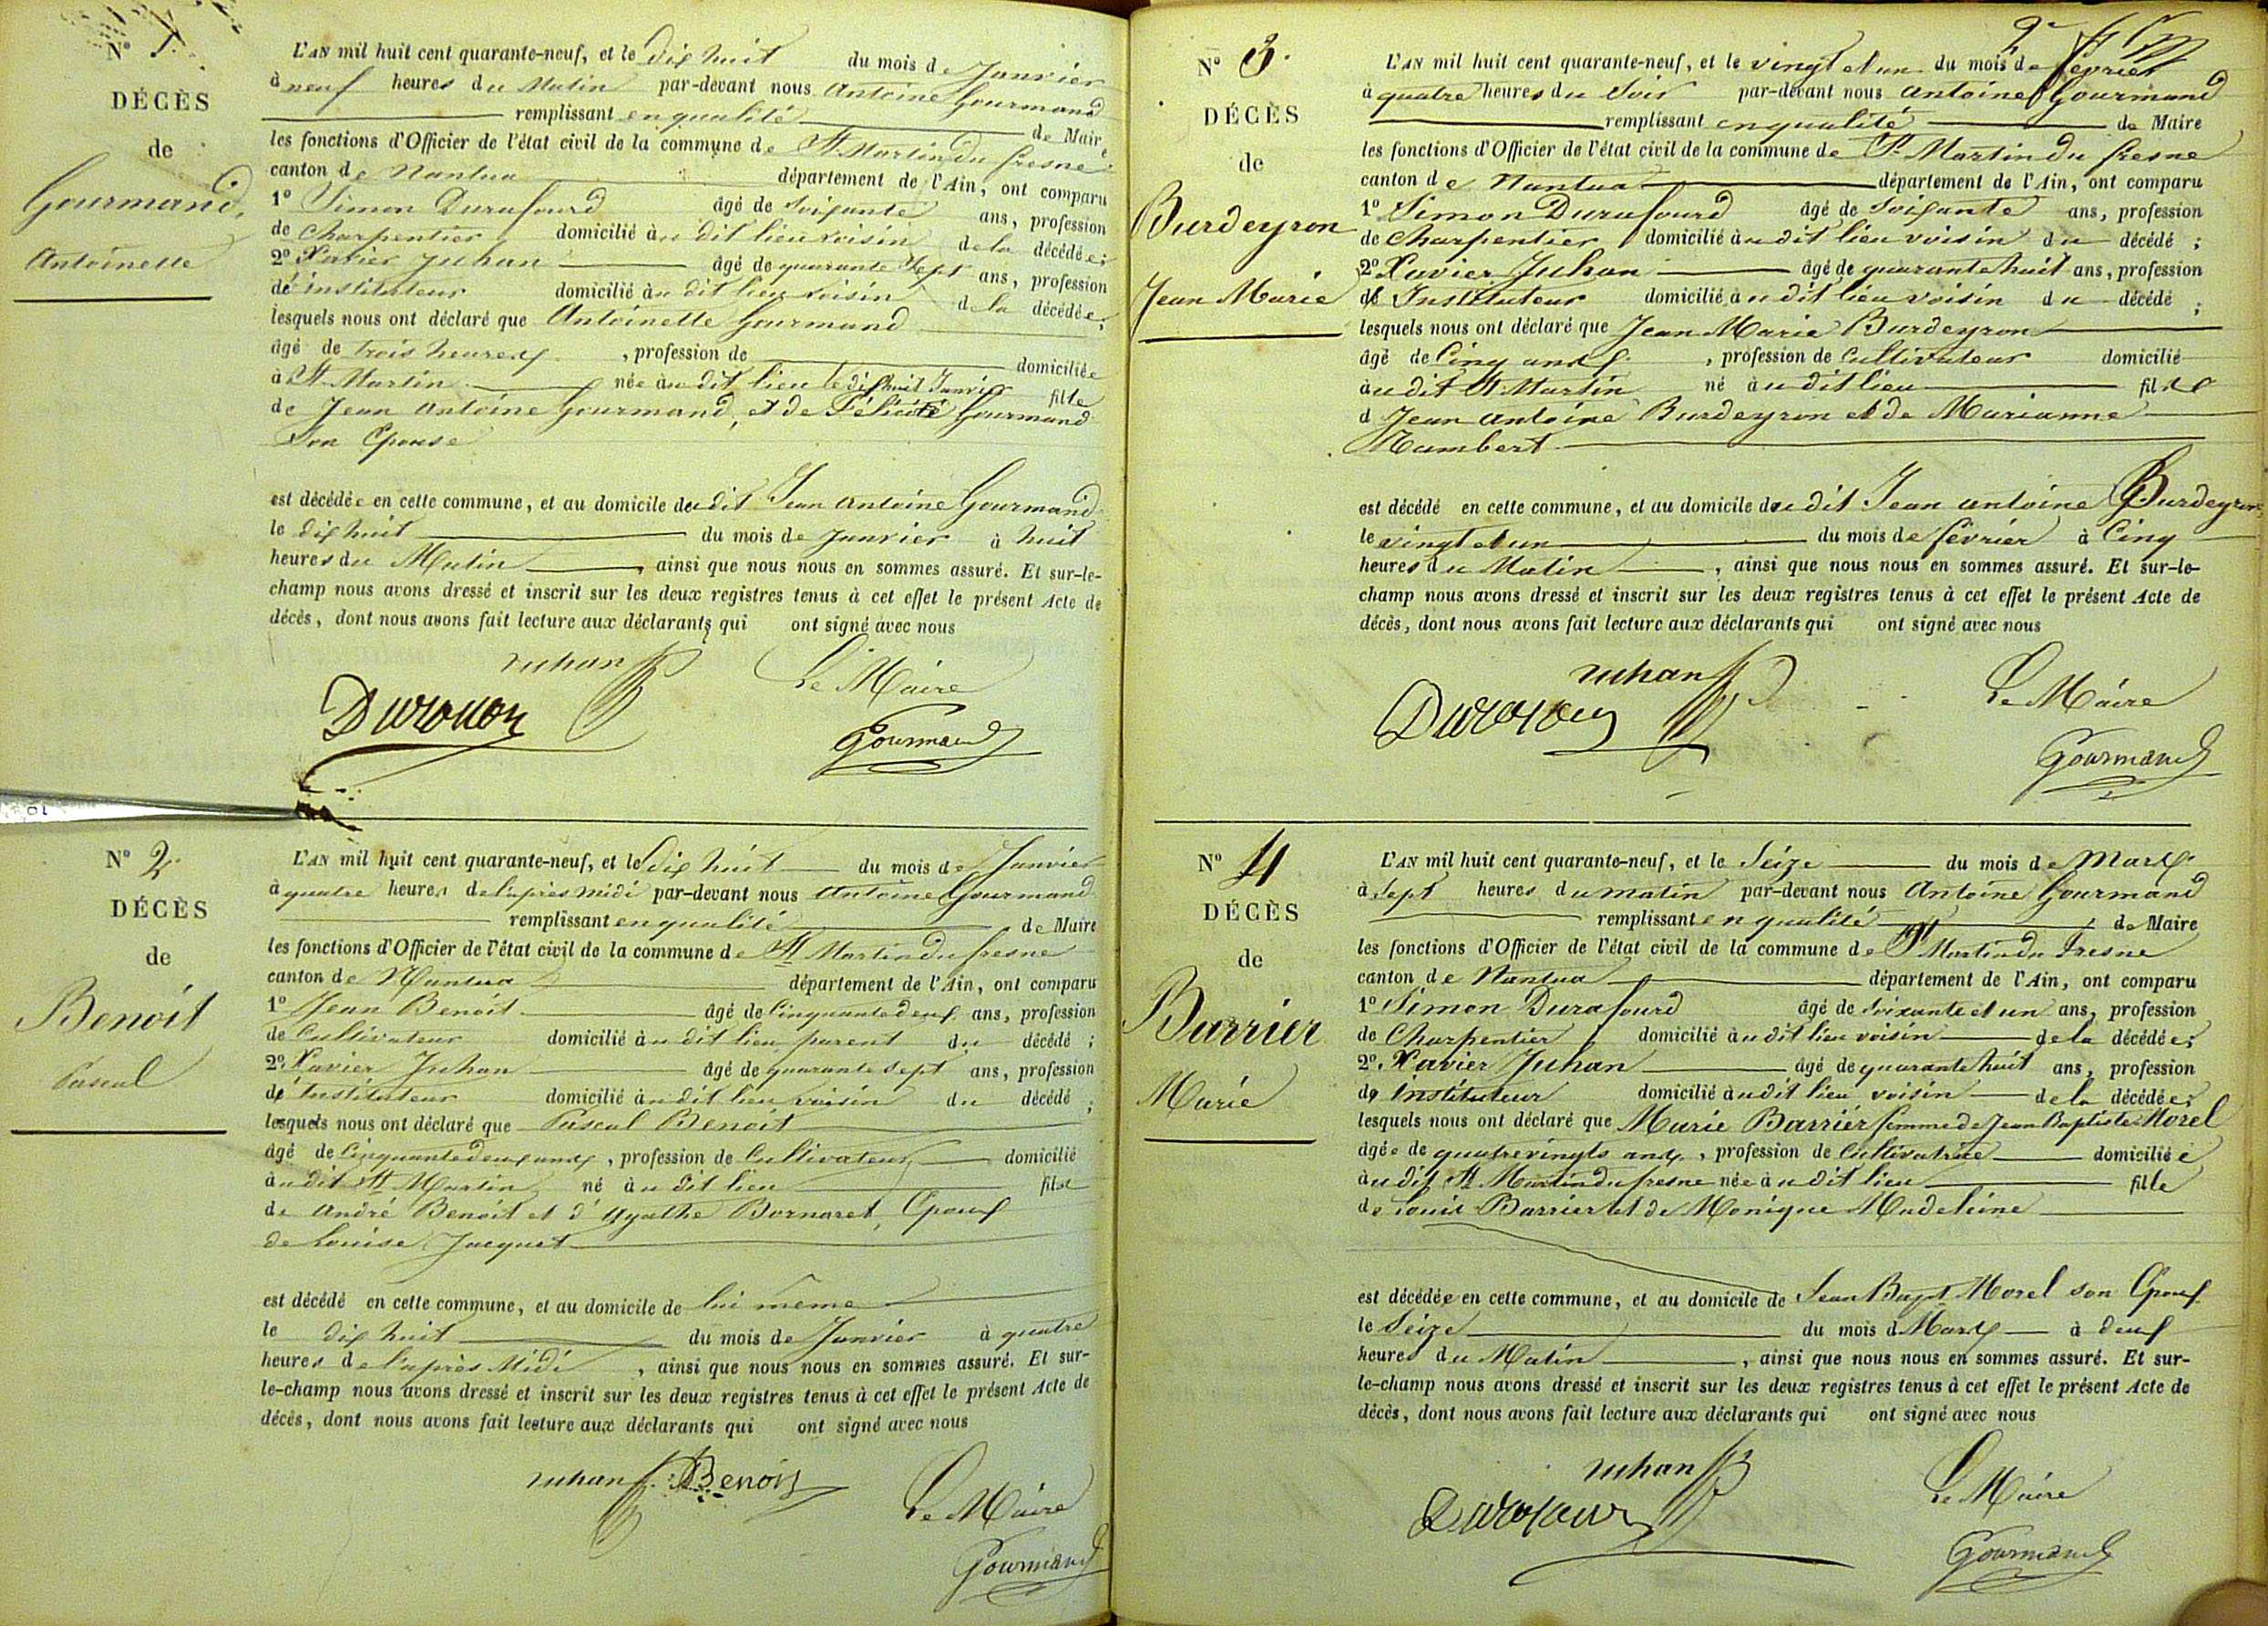 N° 1.
DÉCÈS
de
Gourmand,
Antoinette
L'AN mil huit cent quarante-neuf, et le dix huit du mois de Janvier
à neuf heures du Matin par-devant nous Antoine Gourmand
remplissant en qualité de Maire
les fonctions d'Officier de l'état civil de la commune de St Martin du fresne
canton de Nantua département de l'Ain, ont comparu
1° Simon Durafourd âgé de Soixante ans, profession
de Charpentier domicilié au dit lieu voisin de la décédée;
2° Xavier Juhan âgé de quarante Sept ans, profession
de instituteur domicilié au dit lieu voisin de la décédée;
lesquels nous ont déclaré que Antoinette Gourmand
âgé de trois heures, profession de domiciliée
à St Martin née au dit lieu le dix huit Janvier fille
de Jean Antoine Gourmand, et de Félicité Gourmand
Son Epouse
est décédée en cette commune, et au domicile du dit Jean Antoine Gourmand
le dix huit du mois de Janvier à huit
heures du Matin, ainsi que nous nous en sommes assuré. Et sur-le-
champ nous avons dressé et inscrit sur les deux registres tenus à cet effet le présent Acte de
décès, dont nous avons fait lecture aux déclarants qui ont signé avec nous
Juhan
Le Maire
Gourmand
N° 2.
DÉCÈS
de
Benoit
Pascal
L'AN mil huit cent quarante-neuf, et le dix huit du mois de Janvier
à quatre heures de l'après midi par-devant nous Antoine Gourmand
remplissant en qualité de Maire
les fonctions d'Officier de l'état civil de la commune de St Martin du fresne
canton de Nantua département de l'Ain, ont comparu
1° Jean Benoit âgé de Cinquante deux ans, profession
de Cultivateur domicilié au dit lieu parent du décédé;
2° Xavier Juhan âgé de quarante sept ans, profession
de Instituteur domicilié au dit lieu voisin du décédé;
lesquels nous ont déclaré que Pascal Benoit
âgé de Cinquante deux ans, profession de Cultivateur domicilié
au dit St Martin né au dit lieu fils
de André Benoit et d'Agathe Bornaret, Epoux
de Louise Jacquet
est décédé en cette commune, et au domicile de lui même
le dix huit du mois de Janvier à quatre
heures de l'après Midi, ainsi que nous nous en sommes assuré. Et sur-
le-champ nous avons dressé et inscrit sur les deux registres tenus à cet effet le présent Acte de
décès, dont nous avons fait lecture aux déclarants qui ont signé avec nous
Juhan Benoit
Le Maire
Gourmand
N° 3.
DÉCÈS
de
Burdeyron
Jean Marie
L'AN mil huit cent quarante-neuf, et le vingt et un du mois de février
à quatre heures du Soir par-devant nous Antoine Gourmand
remplissant en qualité de Maire
les fonctions d'Officier de l'état civil de la commune de St Martin du fresne
canton de Nantua département de l'Ain, ont comparu
1° Simon Durafourd âgé de Soixante ans, profession
de Charpentier domicilié au dit lieu voisin du décédé;
2° Xavier Juhan âgé de quarante huit ans, profession
de Instituteur domicilié au dit lieu voisin du décédé;
lesquels nous ont déclaré que Jean Marie Burdeyron
âgé de Cinq ans, profession de Cultivateur domicilié
au dit St Martin né au dit lieu fils de
d Jean Antoine Burdeyron et de Marianne
Humbert
est décédé en cette commune, et au domicile du dit Jean Antoine Burdeyron
le vingt et un du mois de février à Cinq
heures du Matin, ainsi que nous nous en sommes assuré. Et sur-le-
champ nous avons dressé et inscrit sur les deux registres tenus à cet effet le présent Acte de
décès, dont nous avons fait lecture aux déclarants qui ont signé avec nous
Juhan
Le Maire
Gourmand
N° 4
DÉCÈS
de
Barrier
Marie
L'AN mil huit cent quarante-neuf, et le Seize du mois de Mars
à Sept heures du matin par-devant nous Antoine Gourmand
remplissant en qualité de Maire
les fonctions d'Officier de l'état civil de la commune de St Martin du Fresne
canton de Nantua département de l'Ain, ont comparu
1° Simon Durafourd âgé de Soixante et un ans, profession
de Charpentier domicilié au dit lieu voisin de la décédée;
2° Xavier Juhan âgé de quarante huit ans, profession
de Instituteur domicilié au dit lieu voisin de la décédée;
lesquels nous ont déclaré que Marie Barrier femme de Jean Baptiste Morel
âgée de quatre vingts ans, profession de Cultivatrice domiciliée
au dit St Martin du fresne née au dit lieu fille
de Louis Barrier et de Monique Madeleine
est décédée en cette commune, et au domicile de Jean Bapt Morel son Epoux
le Seize du mois d Mars à deux
heures du Matin, ainsi que nous nous en sommes assuré. Et sur-
le-champ nous avons dressé et inscrit sur les deux registres tenus à cet effet le présent Acte de
décès, dont nous avons fait lecture aux déclarants qui ont signé avec nous
Juhan
Le Maire
Gourmand